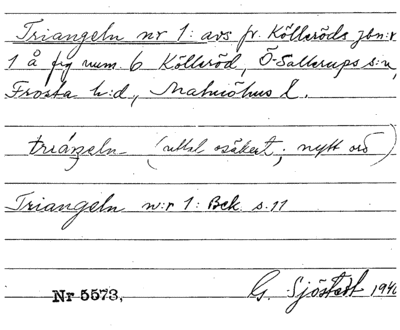 Triangeln nr 1: avs fr. Källeröds jbn:r
1 å fig num. 6 Källeröd, Ö-Sallerups s:n,
Frosta h:d, Malmöhus l.
triáŋeln (uttal osäkert; nytt ord)
Triangeln n:r 1: Bek. s. 11
Nr 5573. G. Sjöstedt 1940